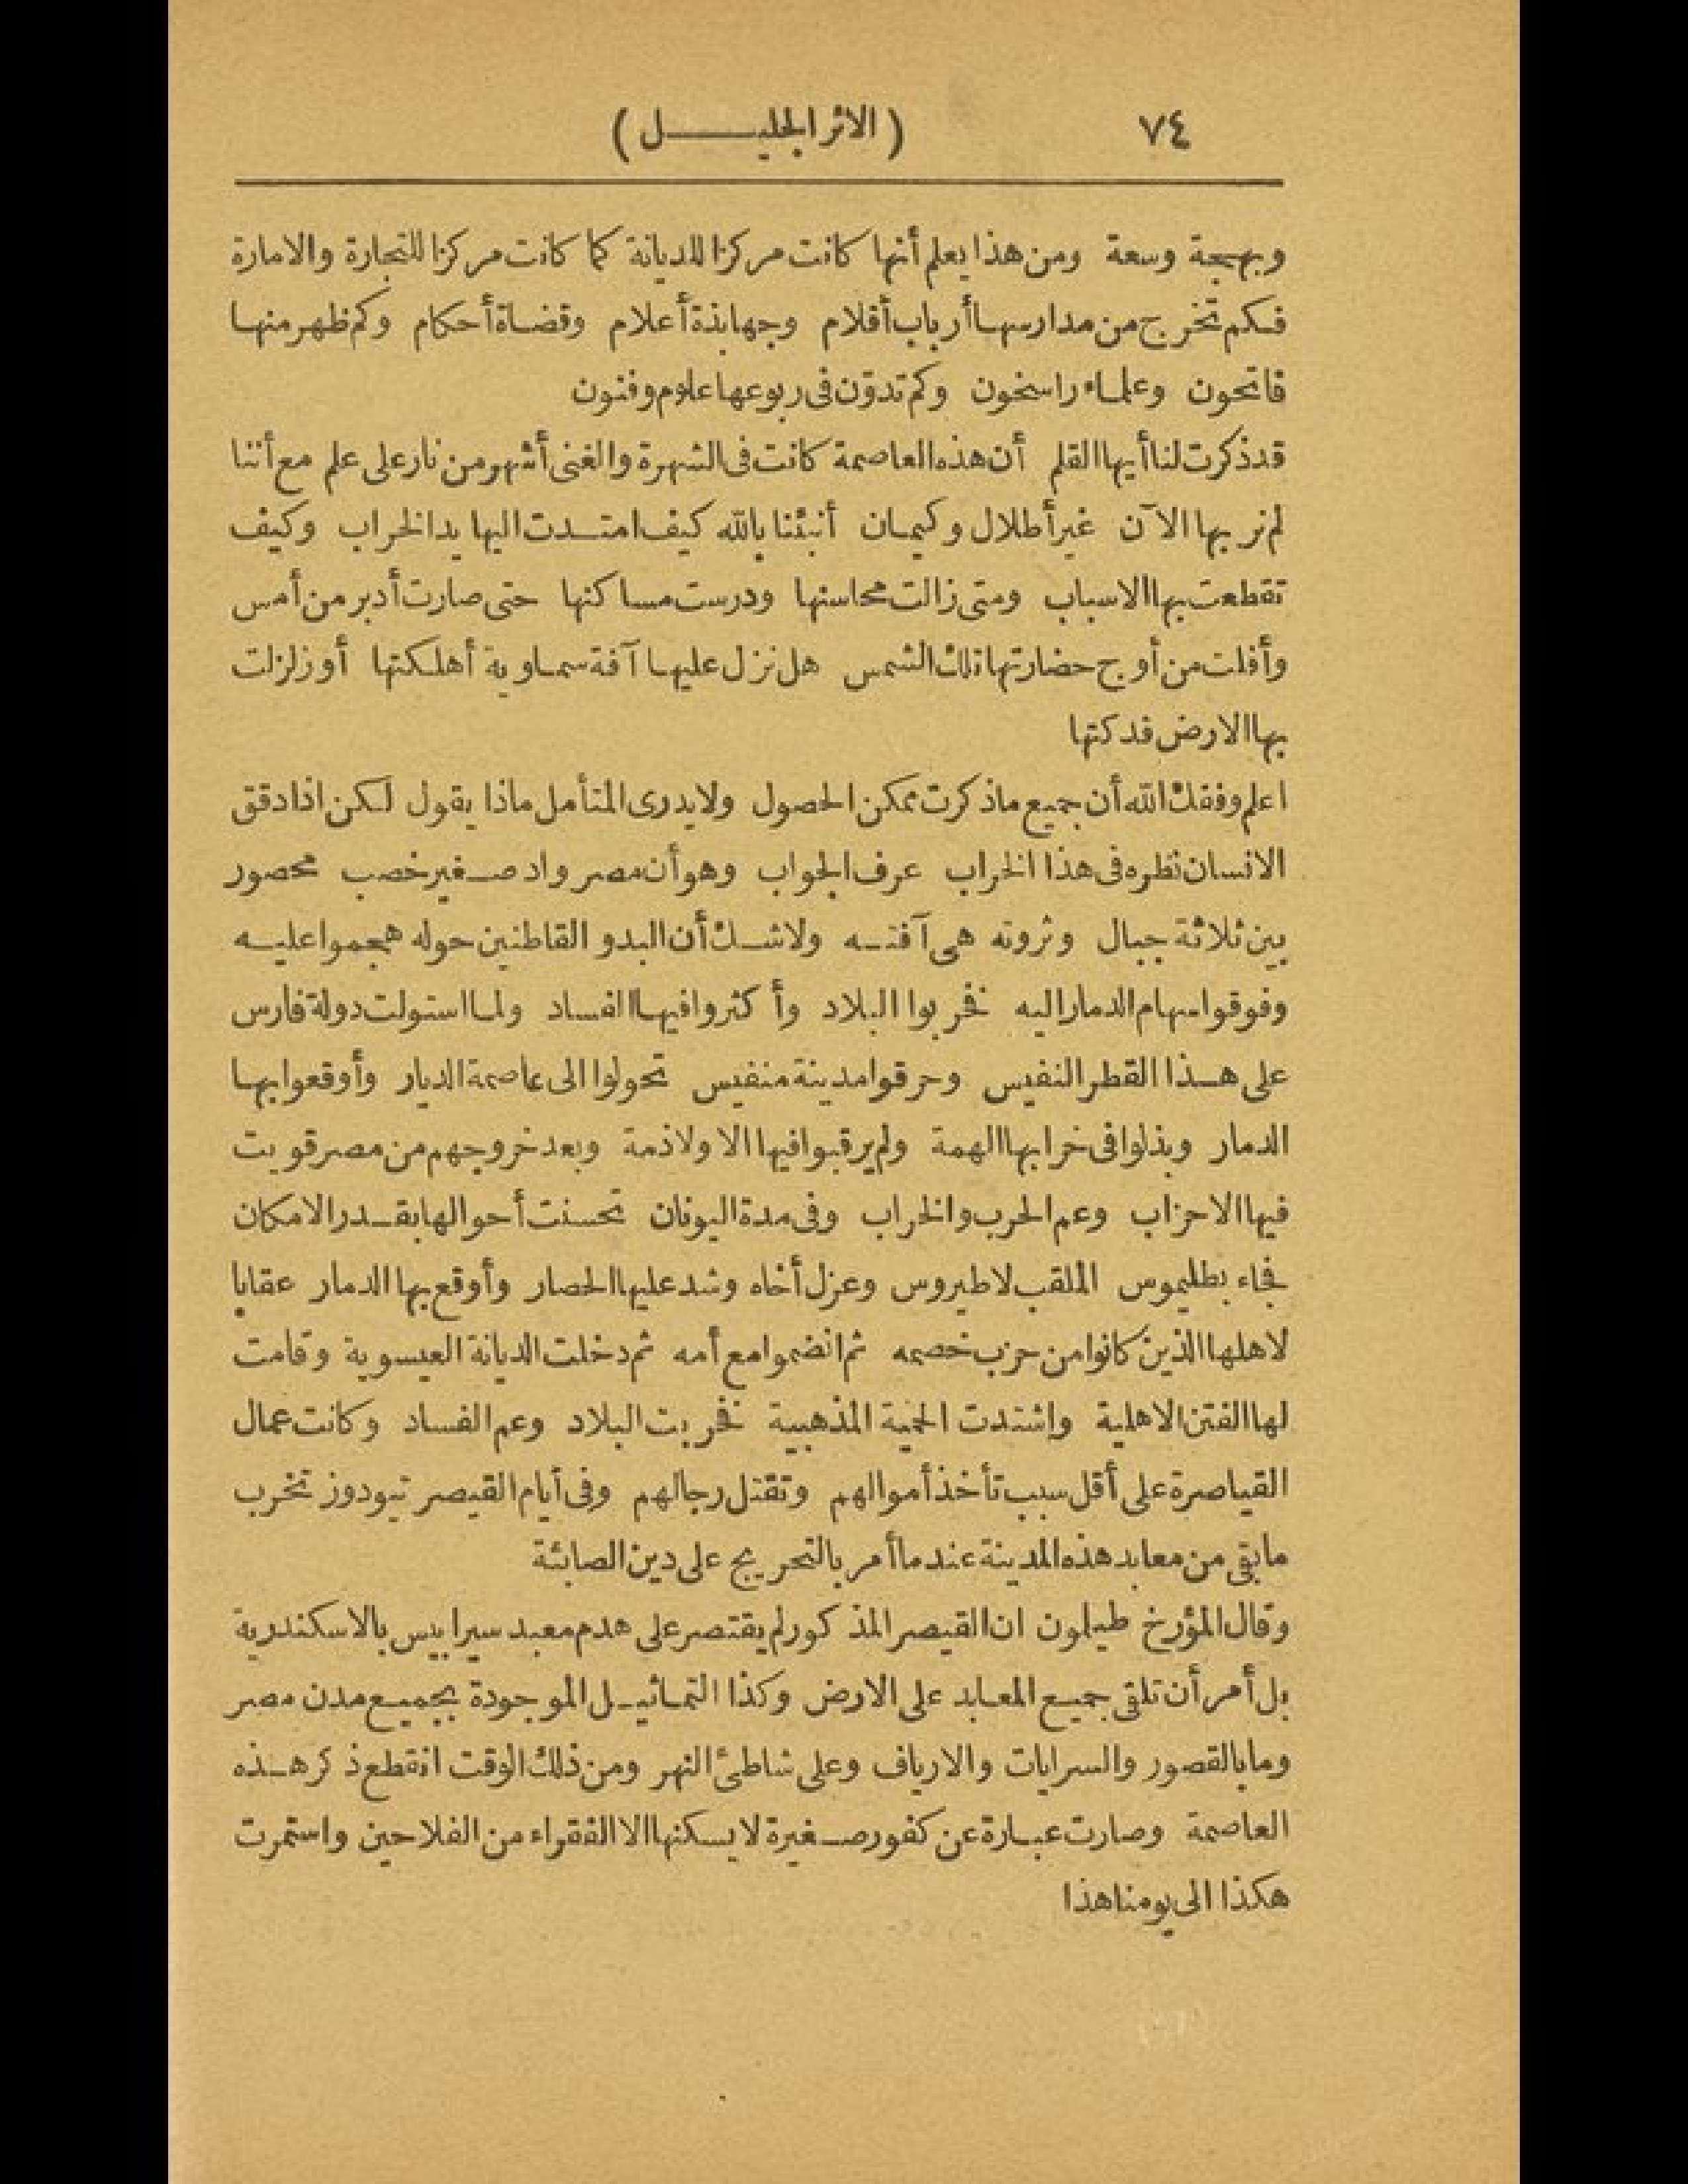 ٧٤ (الاثر الجليل)
وبهجة وسعة ومن هذا يعلم أنها كانت مركزا للديانة كما كانت مركزا للتجارة والامارة
فكم تخرج من مدارسها أرباب أقلام وجهابذة أعلام وقضاة أحكام وكم ظهر منها
فاتحون وعلماء راسخون وكم تدوّن فى ربوعها علوم وفنون
قد ذكرت لنا أيها القلم أن هذه العاصمة كانت فى الشهرة والغنى أشهر من نار على علم مع أننا
لم نر بها الآن غير أطلال وكيمان أنبئنا بالله كيف امتدت اليها يد الخراب وكيف
تقطعت بها الاسباب ومتى زالت محاسنها ودرست مساكنها حتى صارت أدبر من أمس
وأفلت من أوج حضارتها تلك الشمس هل نزل عليها آفة سماوية أهلكتها أو زلزلت
بها الارض فدكتها
اعلم وفقك الله أن جميع ما ذكرت ممكن الحصول ولا يدرى المتأمل ماذا يقول لكن اذا دقق
الانسان نظره فى هذا الخراب عرف الجواب وهو أن مصر واد صغير خصب محصور
بين ثلاثة جبال وثروته هى آفته ولا شك أن البدو القاطنين حوله هجموا عليه
وفوقوا سهام الدمار اليه فخربوا البلاد وأكثروا فيها الفساد ولما استولت دولة فارس
على هذا القطر النفيس وحرقوا مدينة منفيس تحولوا الى عاصمة الديار وأوقعوا بها
الدمار وبذلوا فى خرابها الهمة ولم يرقبوا فيها الا ولا ذمة وبعد خروجهم من مصر قويت
فيها الاحزاب وعم الحرب والخراب وفى مدة اليونان تحسنت أحوالها بقدر الامكان
فجاء بطليموس الملقب لاطيروس وعزل أخاه وشد عليها الحصار وأوقع بها الدمار عقابا
لاهلها الذين كانوا من حزب خصمه ثم انضموا مع أمه ثم دخلت الديانة العيسوية وقامت
لها الفتن الاهلية واشتدت الحمية المذهبية فخربت البلاد وعم الفساد وكانت عمال
القياصرة على أقل سبب تأخذ أموالهم وتقتل رجالهم وفى أيام القيصر تيودوز تخرب
ما بقى من معابد هذه المدينة عندما أمر بالتحريج على دين الصابئة
وقال المؤرخ طيلون ان القيصر المذكور لم يقتصر على هدم معبد سيرابيس بالاسكندرية
بل أمر أن تلقى جميع المعابد على الارض وكذا التماثيل الموجودة بجميع مدن مصر
وما بالقصور والسرايات والارياف وعلى شاطئ النهر ومن ذلك الوقت انقطع ذكر هذه
العاصمة وصارت عبارة عن كفور صغيرة لا يسكنها الا الفقراء من الفلاحين واستمرت
هكذا الى يومنا هذا